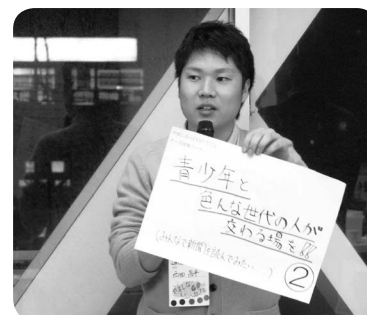 青少年と
色んな世代の人が
交わる場を!!
(みんなで新聞を読んでみた・・)
②